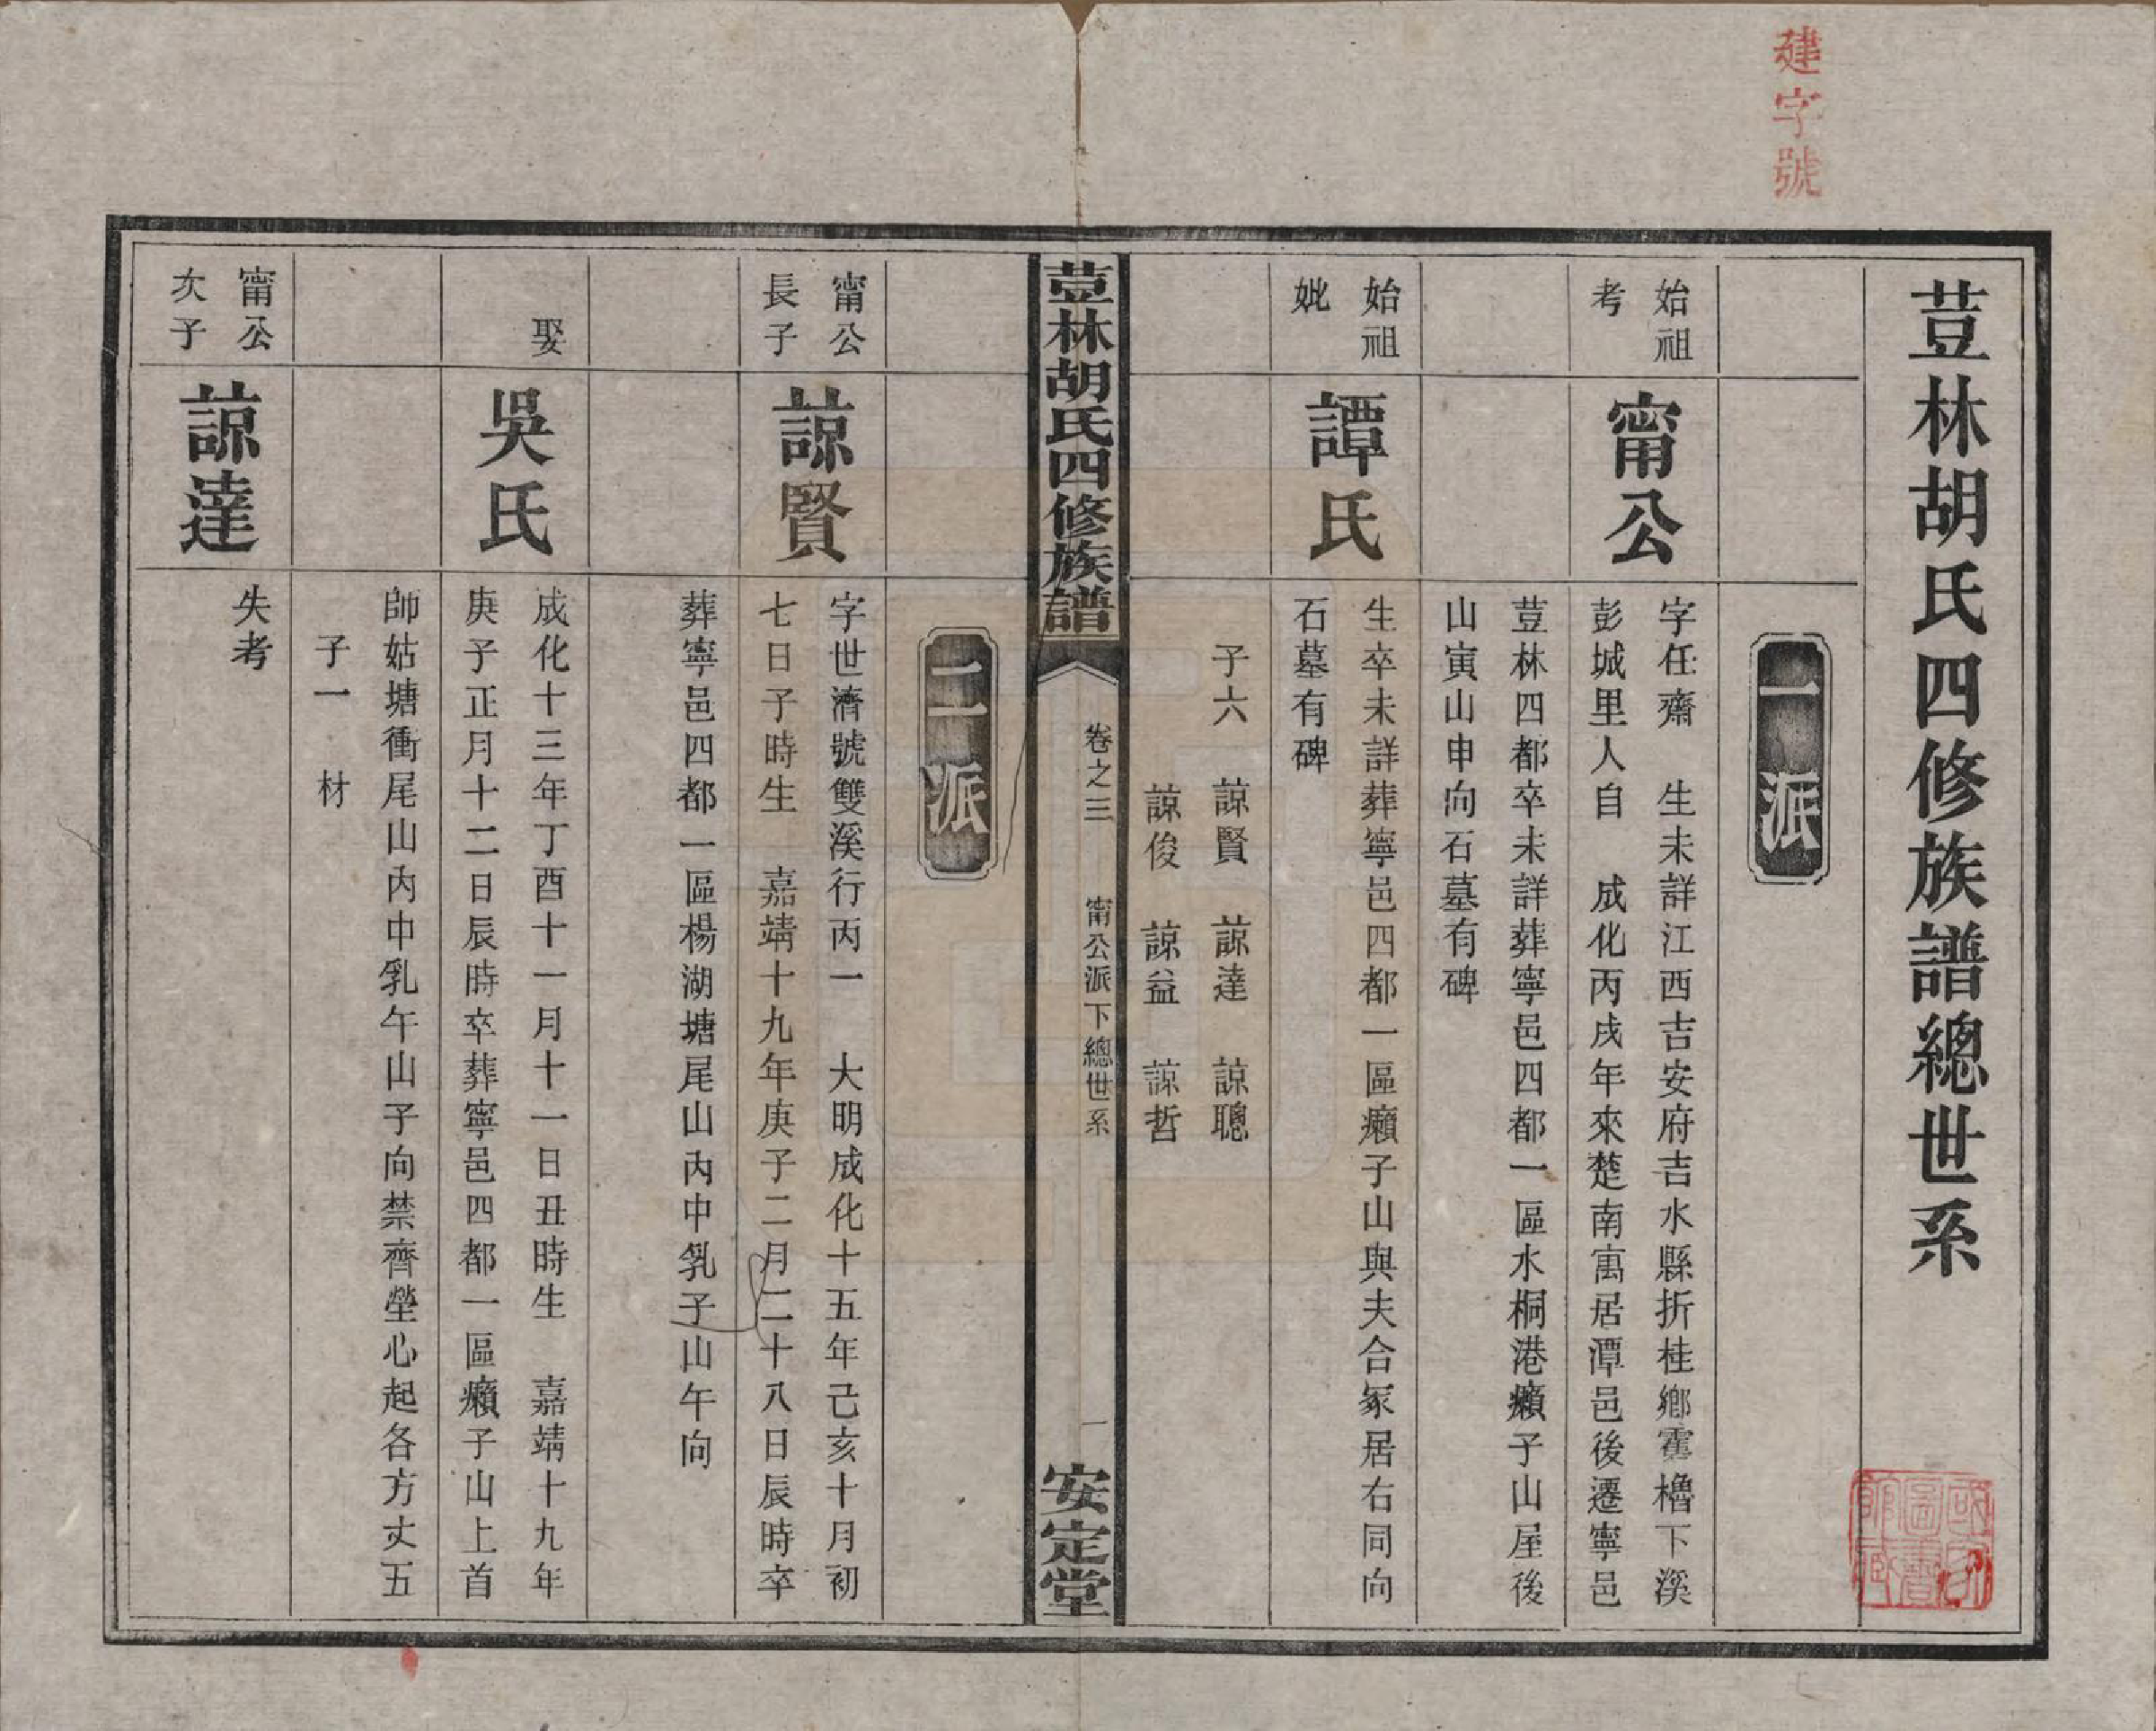 建字號
荳林胡氏四修族譜總世系
一派
始祖考
甯公
字任齋　生未詳江西吉安府吉水縣折桂鄉霍櫓下溪
彭城里人自　成化丙戌年來楚南寓居潭邑後遷寧邑
荳林四都卒未詳葬寧邑四都一區水桐港癩子山屋後
山寅山申向石墓有碑
始祖妣
譚氏
生卒未詳葬寧邑四都一區癩子山與夫合冢居右同向
石墓有碑
子六　諒賢　諒達　諒聰
諒俊　諒益　諒哲
荳林胡氏四修族譜
卷之三
甯公派下總世系
一
安定堂
二派
甯公長子
諒賢
字世濟號雙溪行丙一　大明成化十五年己亥十月初
七日子時生　嘉靖十九年庚子二月二十八日辰時卒
葬寧邑四都一區楊湖塘尾山內中乳子山午向
娶
吳氏
成化十三年丁酉十一月十一日丑時生　嘉靖十九年
庚子正月十二日辰時卒葬寧邑四都一區癩子山上首
師姑塘衝尾山內中乳午山子向禁齊塋心起各方丈五
子一　材
甯公次子
諒達
失考